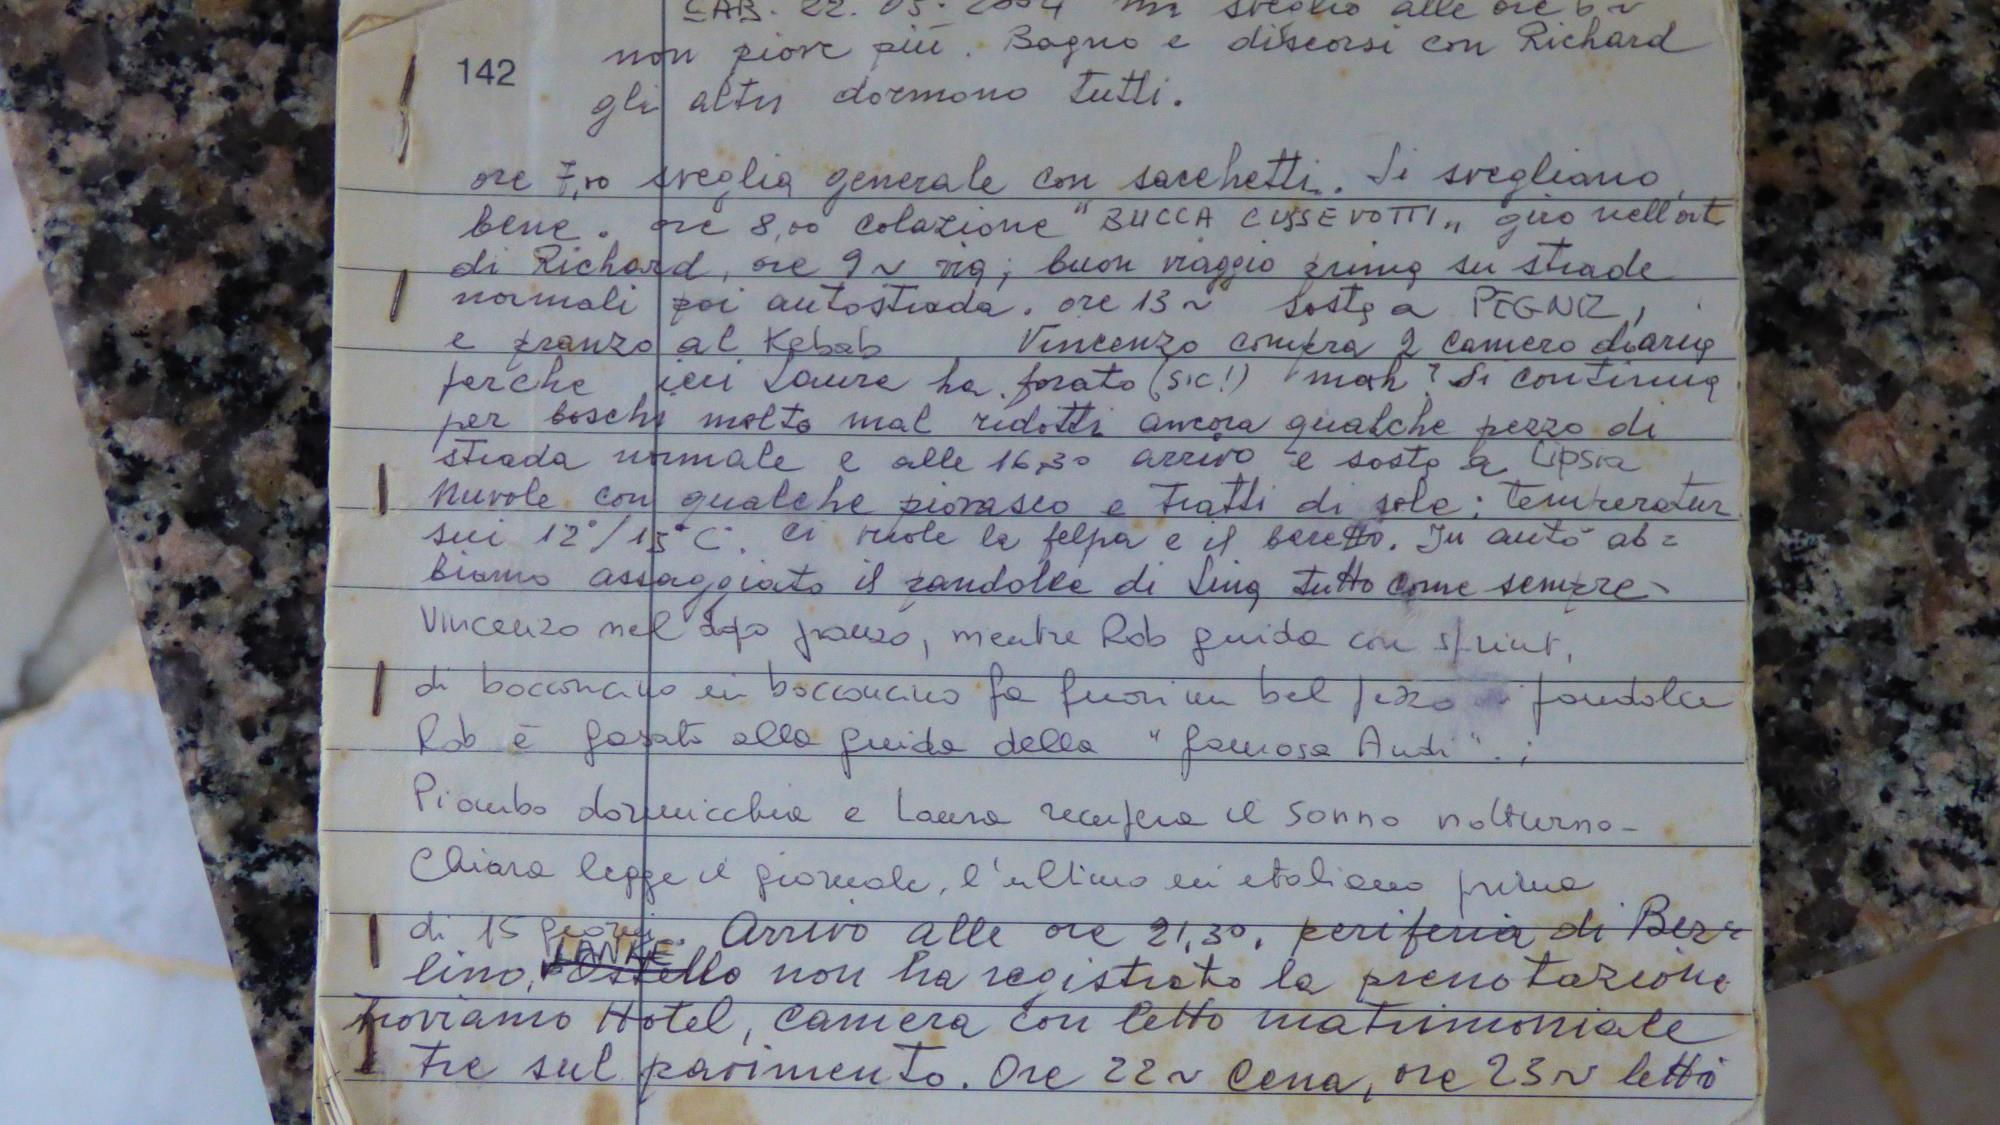 SAB. 22. 05. 2004 mi sveglio alle ore 6 ~
142
non piove più. Bagno e discorsi con Richard
gli altri dormono tutti.
ore 7,10 sveglia generale con sacchetti. Si svegliano
bene. ore 8,00 colazione "BUCCA CUSSEVOTTI" giro nell'ort
di Richard, ore 9 ~ via; buon viaggio prima su strade
normali poi autostrada. ore 13 ~ sosta a PEGNIZ,
e pranzo al Kebab Vincenzo compra 2 camere d'aria
perche ieri Laura ha forato (sic!) mah? Si continua
per boschi molto mal ridotti ancora qualche pezzo di
strada normale e alle 16,30 arrivo e sosta a Lipsia
Nuvole con qualche piovasco e tratti di sole: temperatur
sui 12°/15°C. Ci vuole la felpa e il beretto. In auto ab=
biamo assaggiato il pandolce di Lina tutto come sempre-
Vincenzo nel dopo pranzo, mentre Rob guida con sprint,
di bocconcino in bocconcino fa fuori un bel pezzo di pandolce
Rob è gasato alla guida della "famosa Audi".;
Piombo dormicchia e Laura recupera il sonno notturno-
Chiara legge il giornale, l'ultimo in italiano prima
di 15 giorni. Arrivo alle ore 21,30, periferia di Ber=
LANKE
lino, Ostello non ha registrato la prenotazione
troviamo Hotel, camera con letto matrimoniale
tre sul pavimento. Ore 22 ~ Cena, ore 23 ~ letto